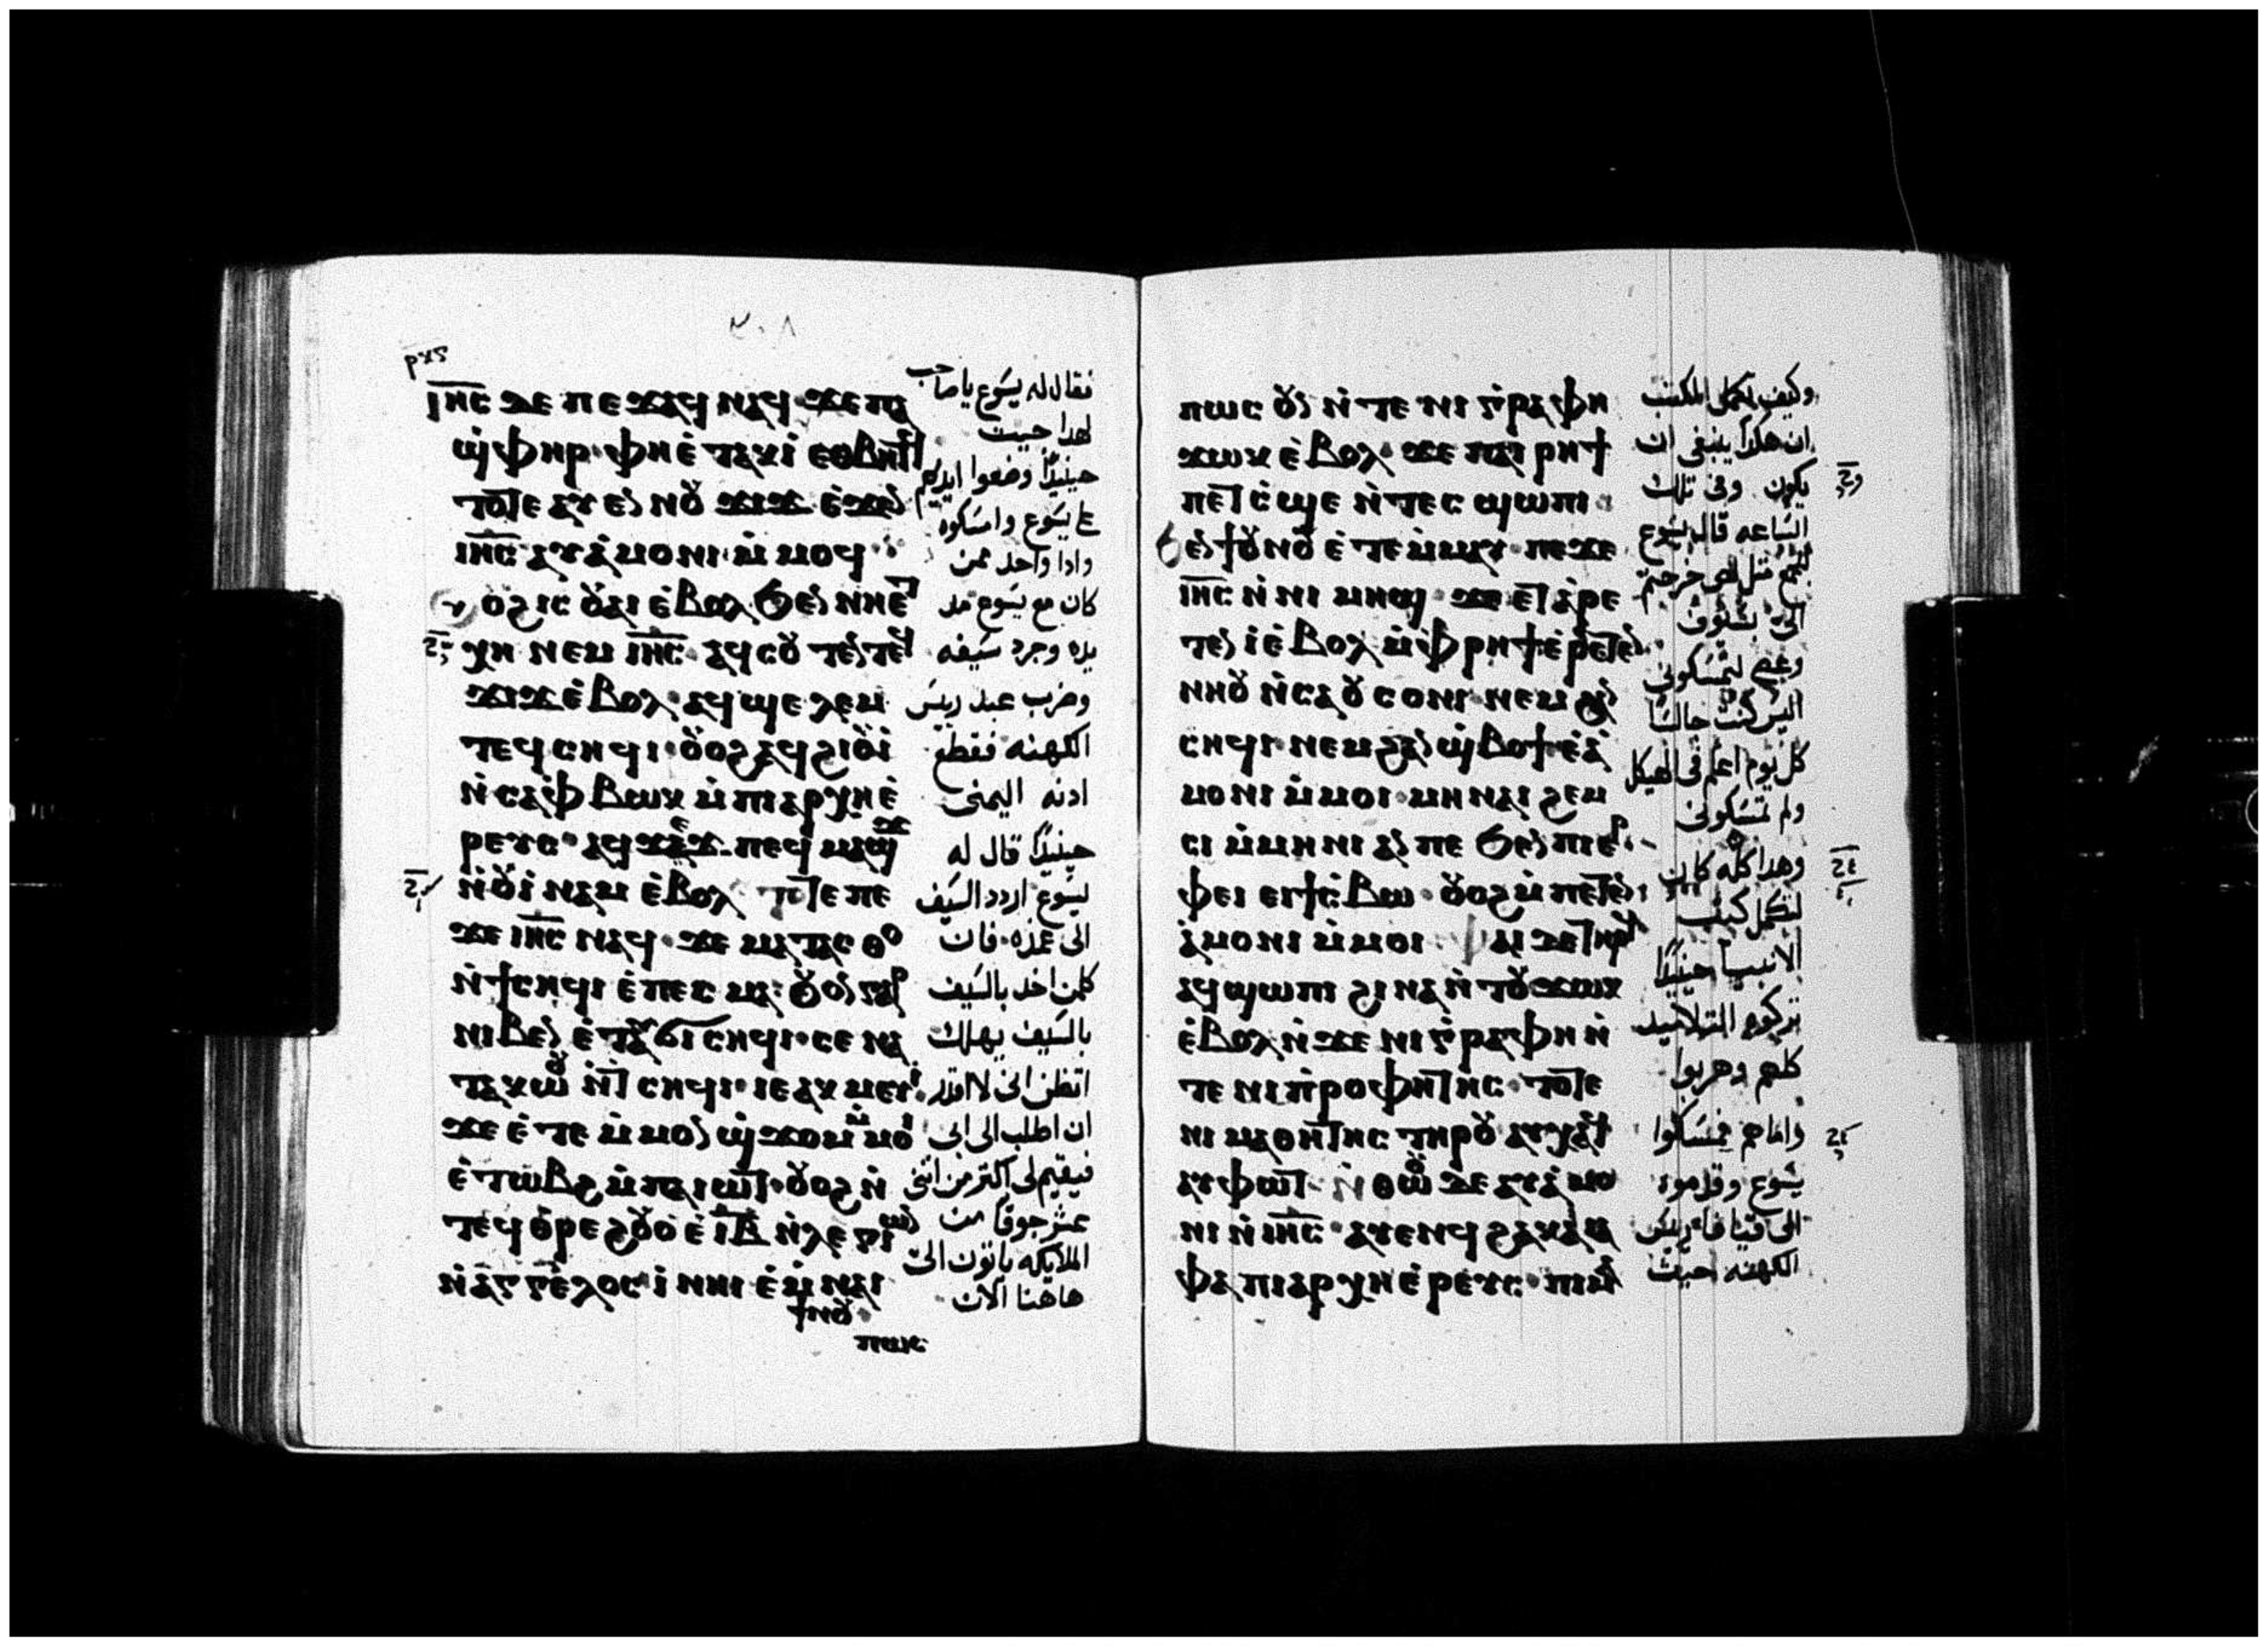 ٣٠٨
ⲓⲏ̅ⲥ ⲇⲉ ⲡⲉϫⲁϥ ⲛⲁϥ ϫⲉ ⲡⲁ
ϣ̀ⲫⲏⲣ ⲫⲏ ⲉ̀ⲧⲁⲕⲓ̀ ⲉⲑⲃⲏⲧϥ
ⲧⲟⲧⲉ ⲁⲩⲉⲛ ⲛⲟⲩ ϫⲓϫ ⲉ̀ϫⲉⲛ
ⲓⲏ̅ⲥ ⲁⲩⲁ̀ⲙⲟⲛⲓ ⲙ̀ⲙⲟϥ
ⲟϩ ⲓⲥ ⲟⲩⲁⲓ ⲉ̀ⲃⲟⲗ ϧⲉⲛ ⲛⲏⲉⲧ
ⲭⲏ ⲛⲉⲙ ⲓⲏ̅ⲥ ⲁϥⲥⲟⲩⲧⲉⲛ ⲧⲉϥ
ϫⲓϫ ⲉ̀ⲃⲟⲗ ⲁϥϣⲉⲗⲉⲙ
ⲧⲉϥⲥⲏϥⲓ ⲟⲩⲟϩ ⲁϥϩⲓⲟⲩⲓ̀
ⲛ̀ⲥⲁ ⲫ̀ⲃⲱⲕ ⲙ̀ⲡⲓⲁⲣⲭⲏⲉ̀
ⲣⲉⲩⲥ ⲁϥ ⲡⲉϥⲙⲁϣϫ
ⲛ̀ⲟⲩⲓ̀ⲛⲁⲙ ⲉ̀ⲃⲟⲗ ⲧⲟⲧⲉ ⲡⲉ
ϫⲉ ⲓⲏ̅ⲥ ⲛⲁϥ ϫⲉ ⲙⲁⲧⲁⲥⲑⲟ
ⲛ̀ϯⲥⲏϥⲓ ⲉ̀ⲡⲉⲥⲙⲁ ⲟⲩⲟⲛ ⲅⲁⲣ
ⲛⲓⲃⲉⲛ ⲉ̀ⲧⲁⲩϭⲓ ⲥⲏϥⲓ ⲥⲉⲛⲁ
ⲧⲁⲕⲱⲟⲩ ⲛ̀ⲧⲥⲏϥⲓ ⲓⲉ ⲁⲕⲙⲉⲩⲓ
ϫⲉ ⲉ̀ⲧⲉ ⲙ̀ⲙⲟⲛ ϣ̀ϫⲟⲙ ⲙ̀ⲙⲟⲓ
ⲉ̀ⲧⲱⲃϩ ⲙ̀ⲡⲁⲓⲱⲧ ⲟⲩⲟϩ ⲛ̀
ⲧⲉϥⲑ̀ⲣⲉ ϩⲟⲩⲟ̀ ⲉ̀ⲓ̅ⲃ̅ ⲛ̀ⲗⲉⲅⲉⲱⲛ
ⲛ̀ⲁⲅⲅⲉⲗⲟⲥ ⲓ̀ ⲛⲏⲓ ⲉ̀ⲙ̀ⲛⲁⲓ
ϯⲛⲟⲩ
ⲡⲱⲥ
فقال له يسوع يا صاحب
لهدا جيت
حينيدًا وضعوا ايديهم
علي يسوع وامسكوه
وادا واحد ممن
كان مع يسوع مد
يده وجرد سيفه
وضرب عبد ريس
الكهنه فقطع
ادنه اليمنى
حينيدًا قال له
يسوع اردد السيف
الى غمده فان
كلمن اخد بالسيف
بالسيف يهلك
اتظن اني لا اقدر
ان اطلب الى ابي
فيقيم لي اكتر من اتنى
عشر جوقًا من
الملايكه ياتون الي
هاهنا الان
ⲡⲱⲥ ⲟⲩⲛ ⲛ̀ⲧⲉ ⲛⲓ ⲅ̀ⲣⲁⲫⲏ
ϫⲱⲕ ⲉ̀ⲃⲟⲗ ϫⲉ ⲡⲁⲓⲣⲏϯ
ⲡⲉⲧⲥ̀ϣⲉ ⲛ̀ⲧⲉⲥϣⲱⲡⲓ
ϧⲉⲛ ϯⲟⲩⲛⲟⲩ ⲉ̀ⲧⲉⲙ̀ⲙⲁⲩ ⲡⲉϫⲉ
ⲓⲏ̅ⲥ ⲛ̀ⲛⲓⲙⲏϣ ϫⲉ ⲉⲧⲁⲣⲉ
ⲧⲉⲛⲓ̀ ⲉ̀ⲃⲟⲗ ⲙ̀ⲫⲣⲏϯ ⲉ̀ⲣⲉⲧⲉⲛ
ⲛⲏⲟⲩ ⲛ̀ⲥⲁ ⲟⲩⲥⲟⲛⲓ ⲛⲉⲙ ϩⲁⲛ
ⲥⲏϥⲓ ⲛⲉⲙ ϩⲁⲛϣ̀ⲃⲟϯ ⲉ̀ⲁ̀
ⲙⲟⲛⲓ ⲙ̀ⲙⲟⲓ ⲙⲏ ⲛⲁⲓϩⲉⲙ
ⲥⲓ ⲙ̀ⲙⲏⲛⲓ ⲁⲛ ⲡⲉ ϧⲉⲛ ⲡⲓⲉⲣ
ⲫⲉⲓ ⲉⲓϯⲥ̀ⲃⲱ ⲟⲩⲟϩ ⲙ̀ⲡⲉⲧⲉⲛ
ⲁ̀ⲙⲟⲛⲓ ⲙ̀ⲙⲟⲓ ⲫⲁⲓ ⲇⲉ ⲧⲏⲣϥ
ⲁϥϣⲱⲡⲓ ϩⲓⲛⲁ ⲛ̀ⲧⲟⲩϫⲱⲕ
ⲉ̀ⲃⲟⲗ ⲛ̀ϫⲉ ⲛⲓⲅ̀ⲣⲁⲫⲏ ⲛ̀
ⲧⲉ ⲛⲓⲡ̀ⲣⲟⲫⲏⲧⲏⲥ ⲧⲟⲧⲉ
ⲛⲓⲙⲁⲑⲏⲧⲏⲥ ⲧⲏⲣⲟⲩ ⲁⲩⲭⲁϥ
ⲁⲩⲫⲱⲧ ⲛ̀ⲑⲱⲟⲩ ⲇⲉ ⲁⲩⲁ̀ⲙⲟ
ⲛⲓ ⲛ̀ⲓⲏ̅ⲥ ⲁⲩⲉⲛϥ ϩⲁ ⲕⲁⲓⲁ̀
ⲫⲁ ⲡⲓⲁⲣⲭⲏⲉ̀ⲣⲉⲩⲥ ⲡⲓⲙⲁ
وكيف تكمل المكتب
ان هكدا ينبغى ان
يكون وفى تلك
الساعه قال يسوع
للجمع متل لص خرجتم
الي بسيوف
وعصي لتمسكونى
اليس كنت جالسًا
كل يوم اعلم فى الهيكل
ولم تمسكونى
وهدا كله كان
لتكمل كتب
الانبيا حينيدًا
تركوه التلاميد
كلهم وهربوا
واما هم فمسكوا
يسوع وقدموه
الى قيافا ريس
الكهنه حيث